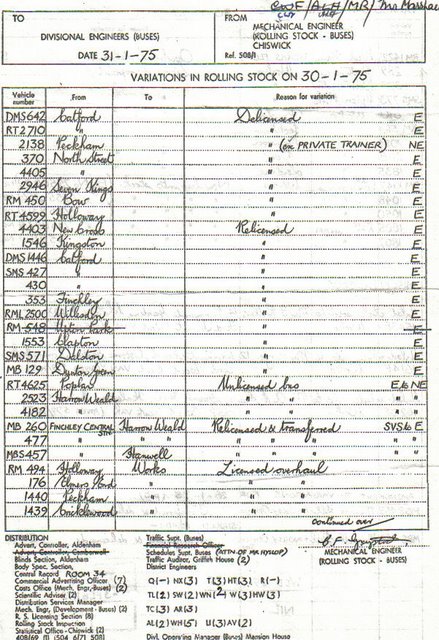 CWF/ALA/MR/ Mr Marshall
TO
DIVISIONAL ENGINEERS (BUSES)
DATE 31-1-75
FROM
MECHANICAL ENGINEER
(ROLLING STOCK - BUSES)
CHISWICK
Ref. 508/1
VARIATIONS IN ROLLING STOCK ON 30-1-75
Vehicle number From To Reason for variation
DMS 642 Catford Delicensed E
RT 2710 " " E
2138 Peckham " (ex PRIVATE TRAINER) NE
370 North Street " E
4405 " " E
2946 Seven Kings " E
RM 450 Bow " E
RT 4599 Holloway " E
4403 New Cross Relicensed E
1546 Kingston " E
DMS 1446 Catford " E
SMS 427 " " E
430 " " E
353 Finchley " E
RML 2500 Willesden " E
RM 548 Upton Park " E
1553 Clapton " E
SMS 571 Dalston " E
MB 129 Dunton Green " E
RT 4625 Poplar Unlicensed bus E to NE
2523 Harrow Weald " " "
4182 " " " "
MB 260 FINCHLEY CENTRAL STN. Harrow Weald Relicensed & transferred SVS to E
477 " " " " " " "
MBS 457 " Hanwell " " " "
RM 494 Holloway Works Licensed overhaul
176 Elmers End " "
1440 Peckham " "
1439 Cricklewood " "
continued over
MECHANICAL ENGINEER
(ROLLING STOCK - BUSES)
DISTRIBUTION
Advert. Controller, Aldenham
Advert. Controller, Camberwell
Blinds Section, Aldenham
Body Spec. Section,
Central Record ROOM 34
Commercial Advertising Officer (7)
Costs Office (Mech. Engr.-Buses) (2)
Scientific Adviser (2)
Distribution Services Manager
Mech. Engr. (Development - Buses) (2)
R. S. Licensing Section (8)
Rolling Stock Inspection
Statistical Office - Chiswick (2)
Traffic Supt. (Buses)
Financial Research Officer
Schedules Supt. Buses (ATTN. OF MR HYSLOP)
Traffic Auditor, Griffith House (2)
District Engineers
Q(-) NX(3) T(3) HT(3) R(-)
TL(2) SW(2) WN(2) W(3) HW(3)
TC(3) AR(3)
AL(2) WH(5) U(3) AV(2)
Divl. Operating Manager (Buses) Mansion House